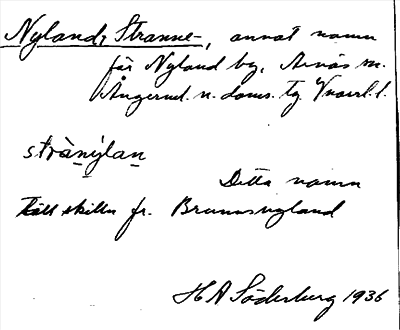 Nyland, Stranne-, annat namn
för Nyland by, Arnäs sn.
Ångerml. n. doms. tg. Vnorrl. l.
strànýlan
Detta namn
till skilln fr. Brunnsnyland
H A Söderberg 1936